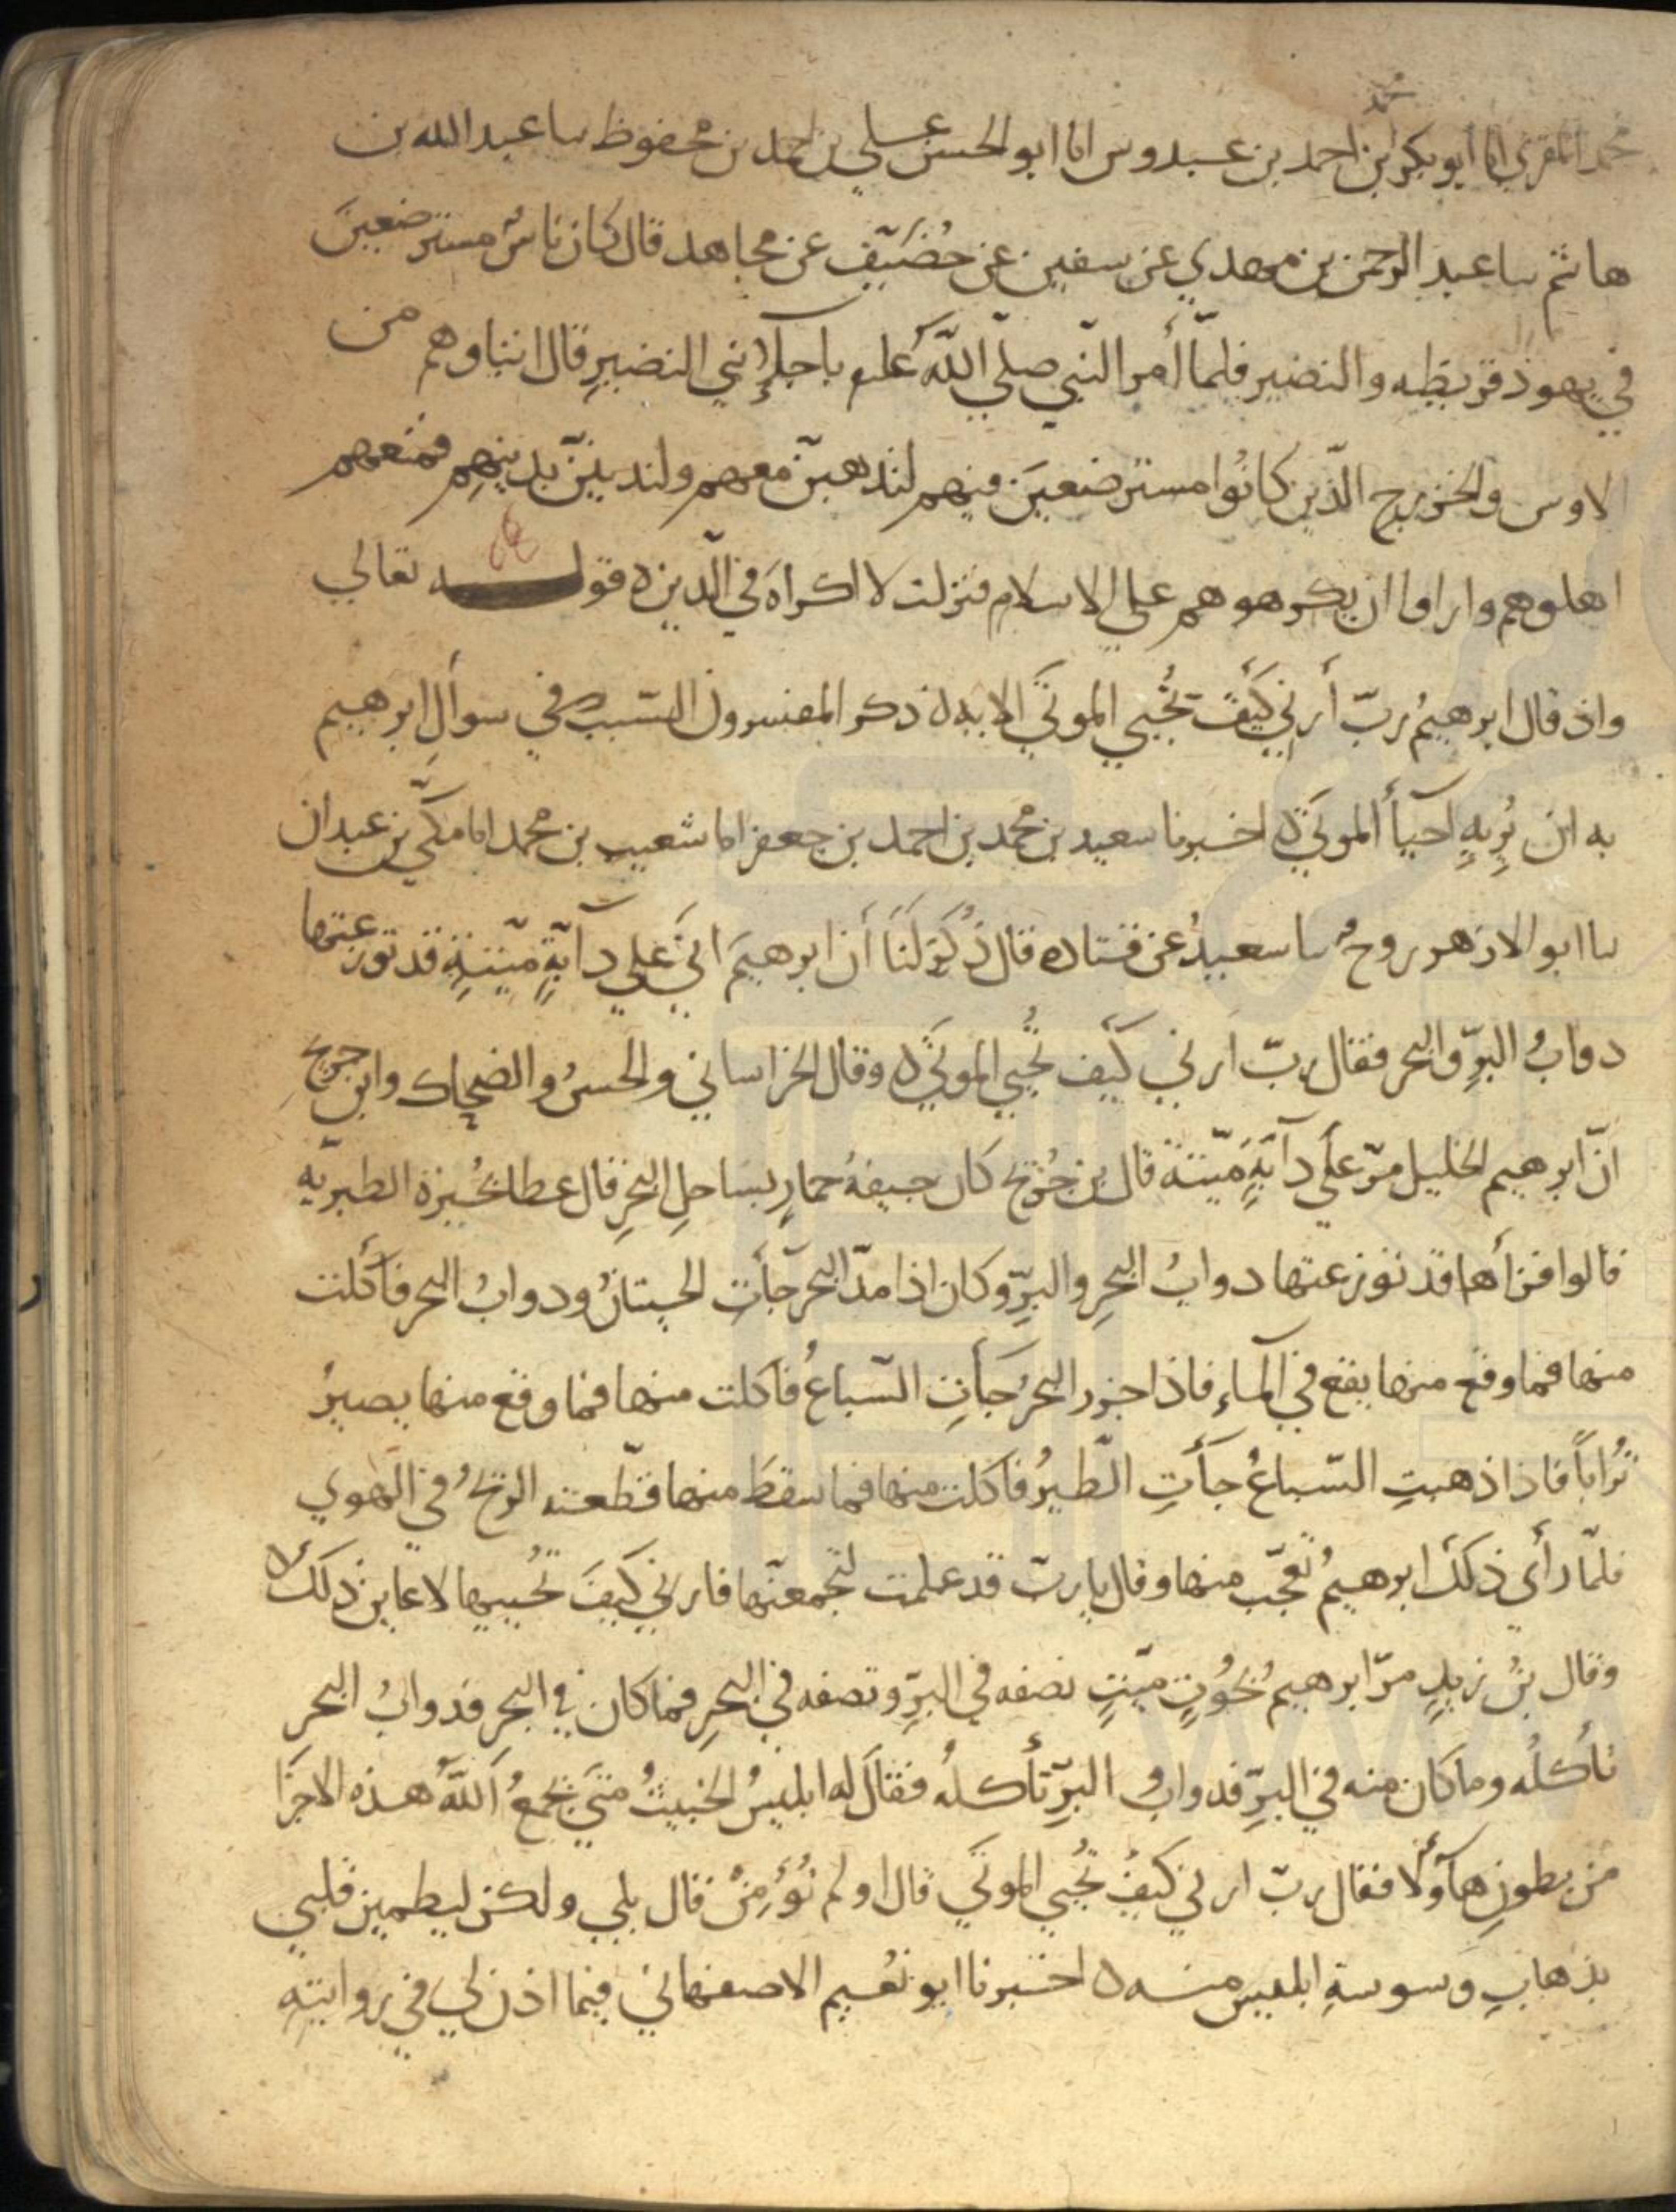 محمد المقري انا ابو بكر بن احمد بن عبدوس انا ابو الحسن علي بن احمد بن محفوظ سا عبد الله بن
هاشم سا عبد الرحمن بن مهدي عن سفين عن خُصَيف عن مجاهد قال كان ناسٌ مسترضعينَ
في يهود قريظه والنضير فلمّا أمر النبي صلّي اللّه علىه باجلإ بني النضيرِ قال ابناوهم من
الاوس والخزرج الّذين كانُوا مسترضعينَ فيهم لنذهبنّ معهم ولندينَنّ بدينهِم فمنعهم
اهلوهم وارادوا ان يكرهوهم علي الاسلام فنزلت لا اكراهَ في الّدين ه قولـــه تعالي
واذ قال ابرهيمُ ربّ أرني كَيفَ تُحيي الموتَي الايه ه ذكر المفسرون السّبب في سوألِ ابرهيم
به ان يُرِيهِ احيآأ الموتَي ه اخبرنا سعيد بن محمد بن احمد بن جعفر انا شعيب بن محمد انا مكّي بن عبدان
سا ابو الازهر سا روحٌ سا سعيدٌ عن قتاده قال ذُكِرَ لَنَا أن ابرهيمَ اتَي علي دآبّةٍ ميّتةٍ قد توزعتها
دوابُ البرِّ والبحر فقال ربّ ارني كَيف تُحيي الموتَي ه وقال الخراساني والحسنُ والضحاك وابن جريج
انّ ابرهيم الخليل مرّ علي دآبّةٍ ميّتة قال بن جُريج كان جيفهُ حمارٍ بساحلِ البحرِ قال عطا بحُيرة الطبريّه
قالوا فرأها قد توزعتها دوابُ البحرِ والبرِّ وكان اذا مدّ البحر جآأتِ الحيتانُ ودوابُ البحر فأكلت
منها فما وقع منها يقع في المآءِ فاذا جزر البحرُ جآأتِ السّباعُ فاكلت منها فما وقع منها يصيرُ
تُراباً فاذا ذهبتِ السّباعُ جآأتِ الّطيرُ فاكلت منها فما سقطَ منها قطّعته الريحُ في الهوي
فلمّا رأى ذلكَ ابرهيمُ تعجّب منها وقال يا ربّ قد علمت لتجمعنّها فارني كَيفَ تُحييها لاعاين ذلك ه
وقال بنُ زيدٍ مرّ ابرهيمُ بحُوتٍ ميّتٍ نصفه في البرِّ ونصفه في البحرِ فما كان في البحر فدوابُ البحر
تأكلُه وما كان منه في البرِّ فدوابُ البرِّ تأكلُه فقال له ابليسُ الخبيثُ متَي يجمعُ اللّهُ هذه الاجزا
من بطونِ هآؤلا فقال ربّ ارني كَيف تُحيي الموتَي قال اولم تُؤمِنْ قال بلي ولكن ليطمين قلبي
بذهابِ وسوسةِ ابليس منه ه اخبرنا ابو نُعيم الاصفهاني فيما اذن لي في روايتهِ